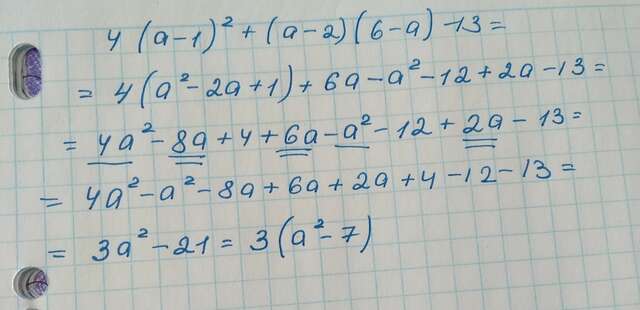 4(a-1)² + (a-2)(6-a) - 13 =
= 4(a² - 2a + 1) + 6a - a² - 12 + 2a - 13 =
= 4a² - 8a + 4 + 6a - a² - 12 + 2a - 13 =
= 4a² - a² - 8a + 6a + 2a + 4 - 12 - 13 =
= 3a² - 21 = 3(a² - 7)